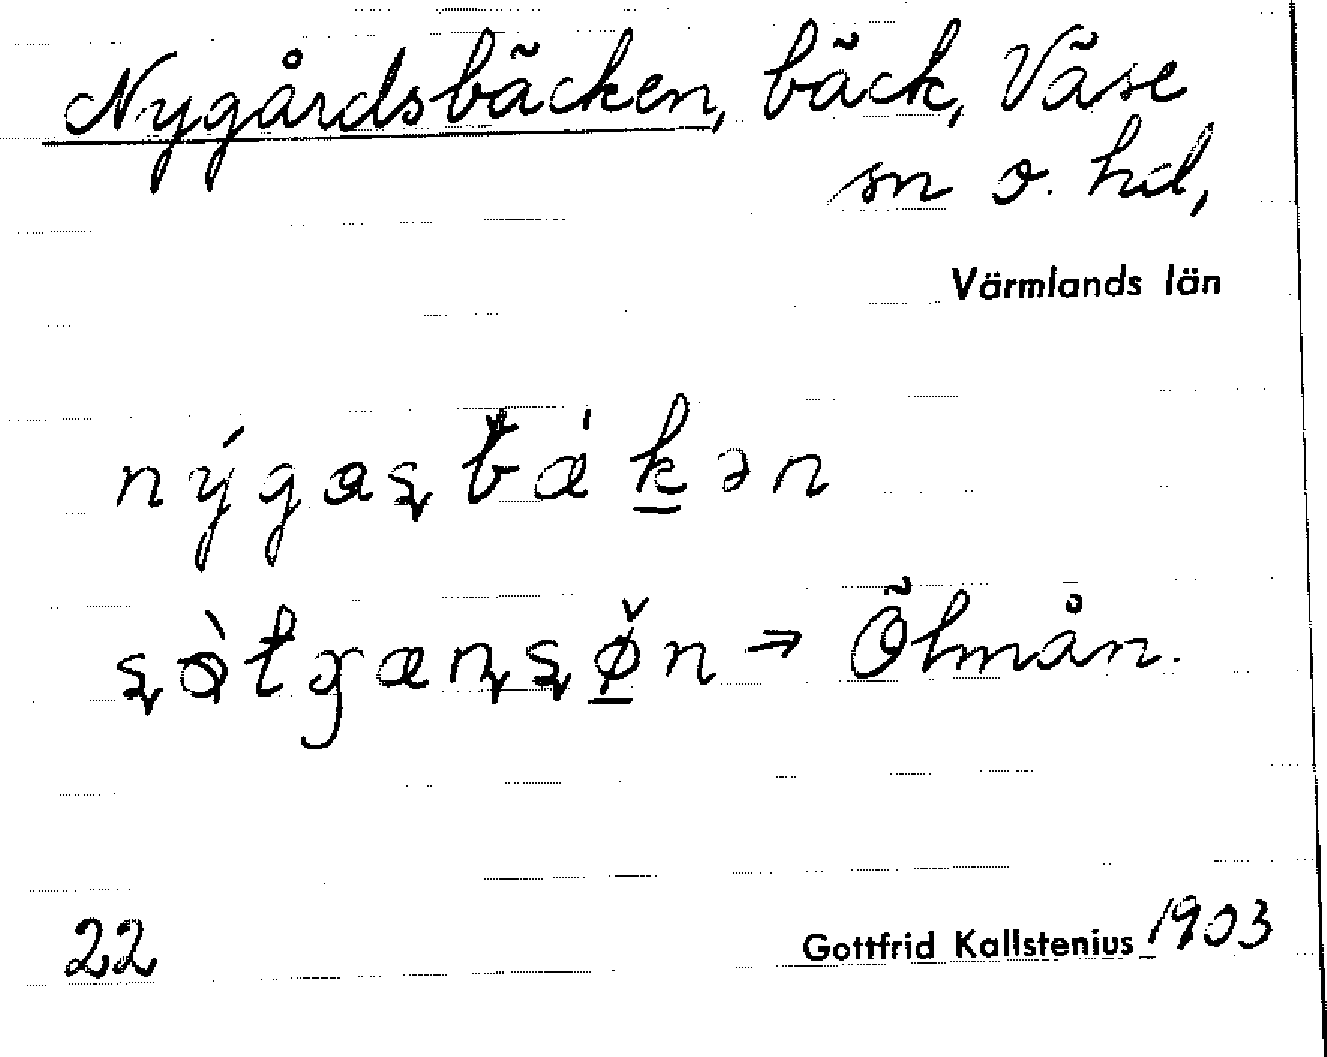 Nygårdsbäcken, bäck, Väse
sn o. hd,
Värmlands län
nýgasbǽkən
sòtgænsøn → Ölmån.
22
Gottfrid Kallstenius 1903